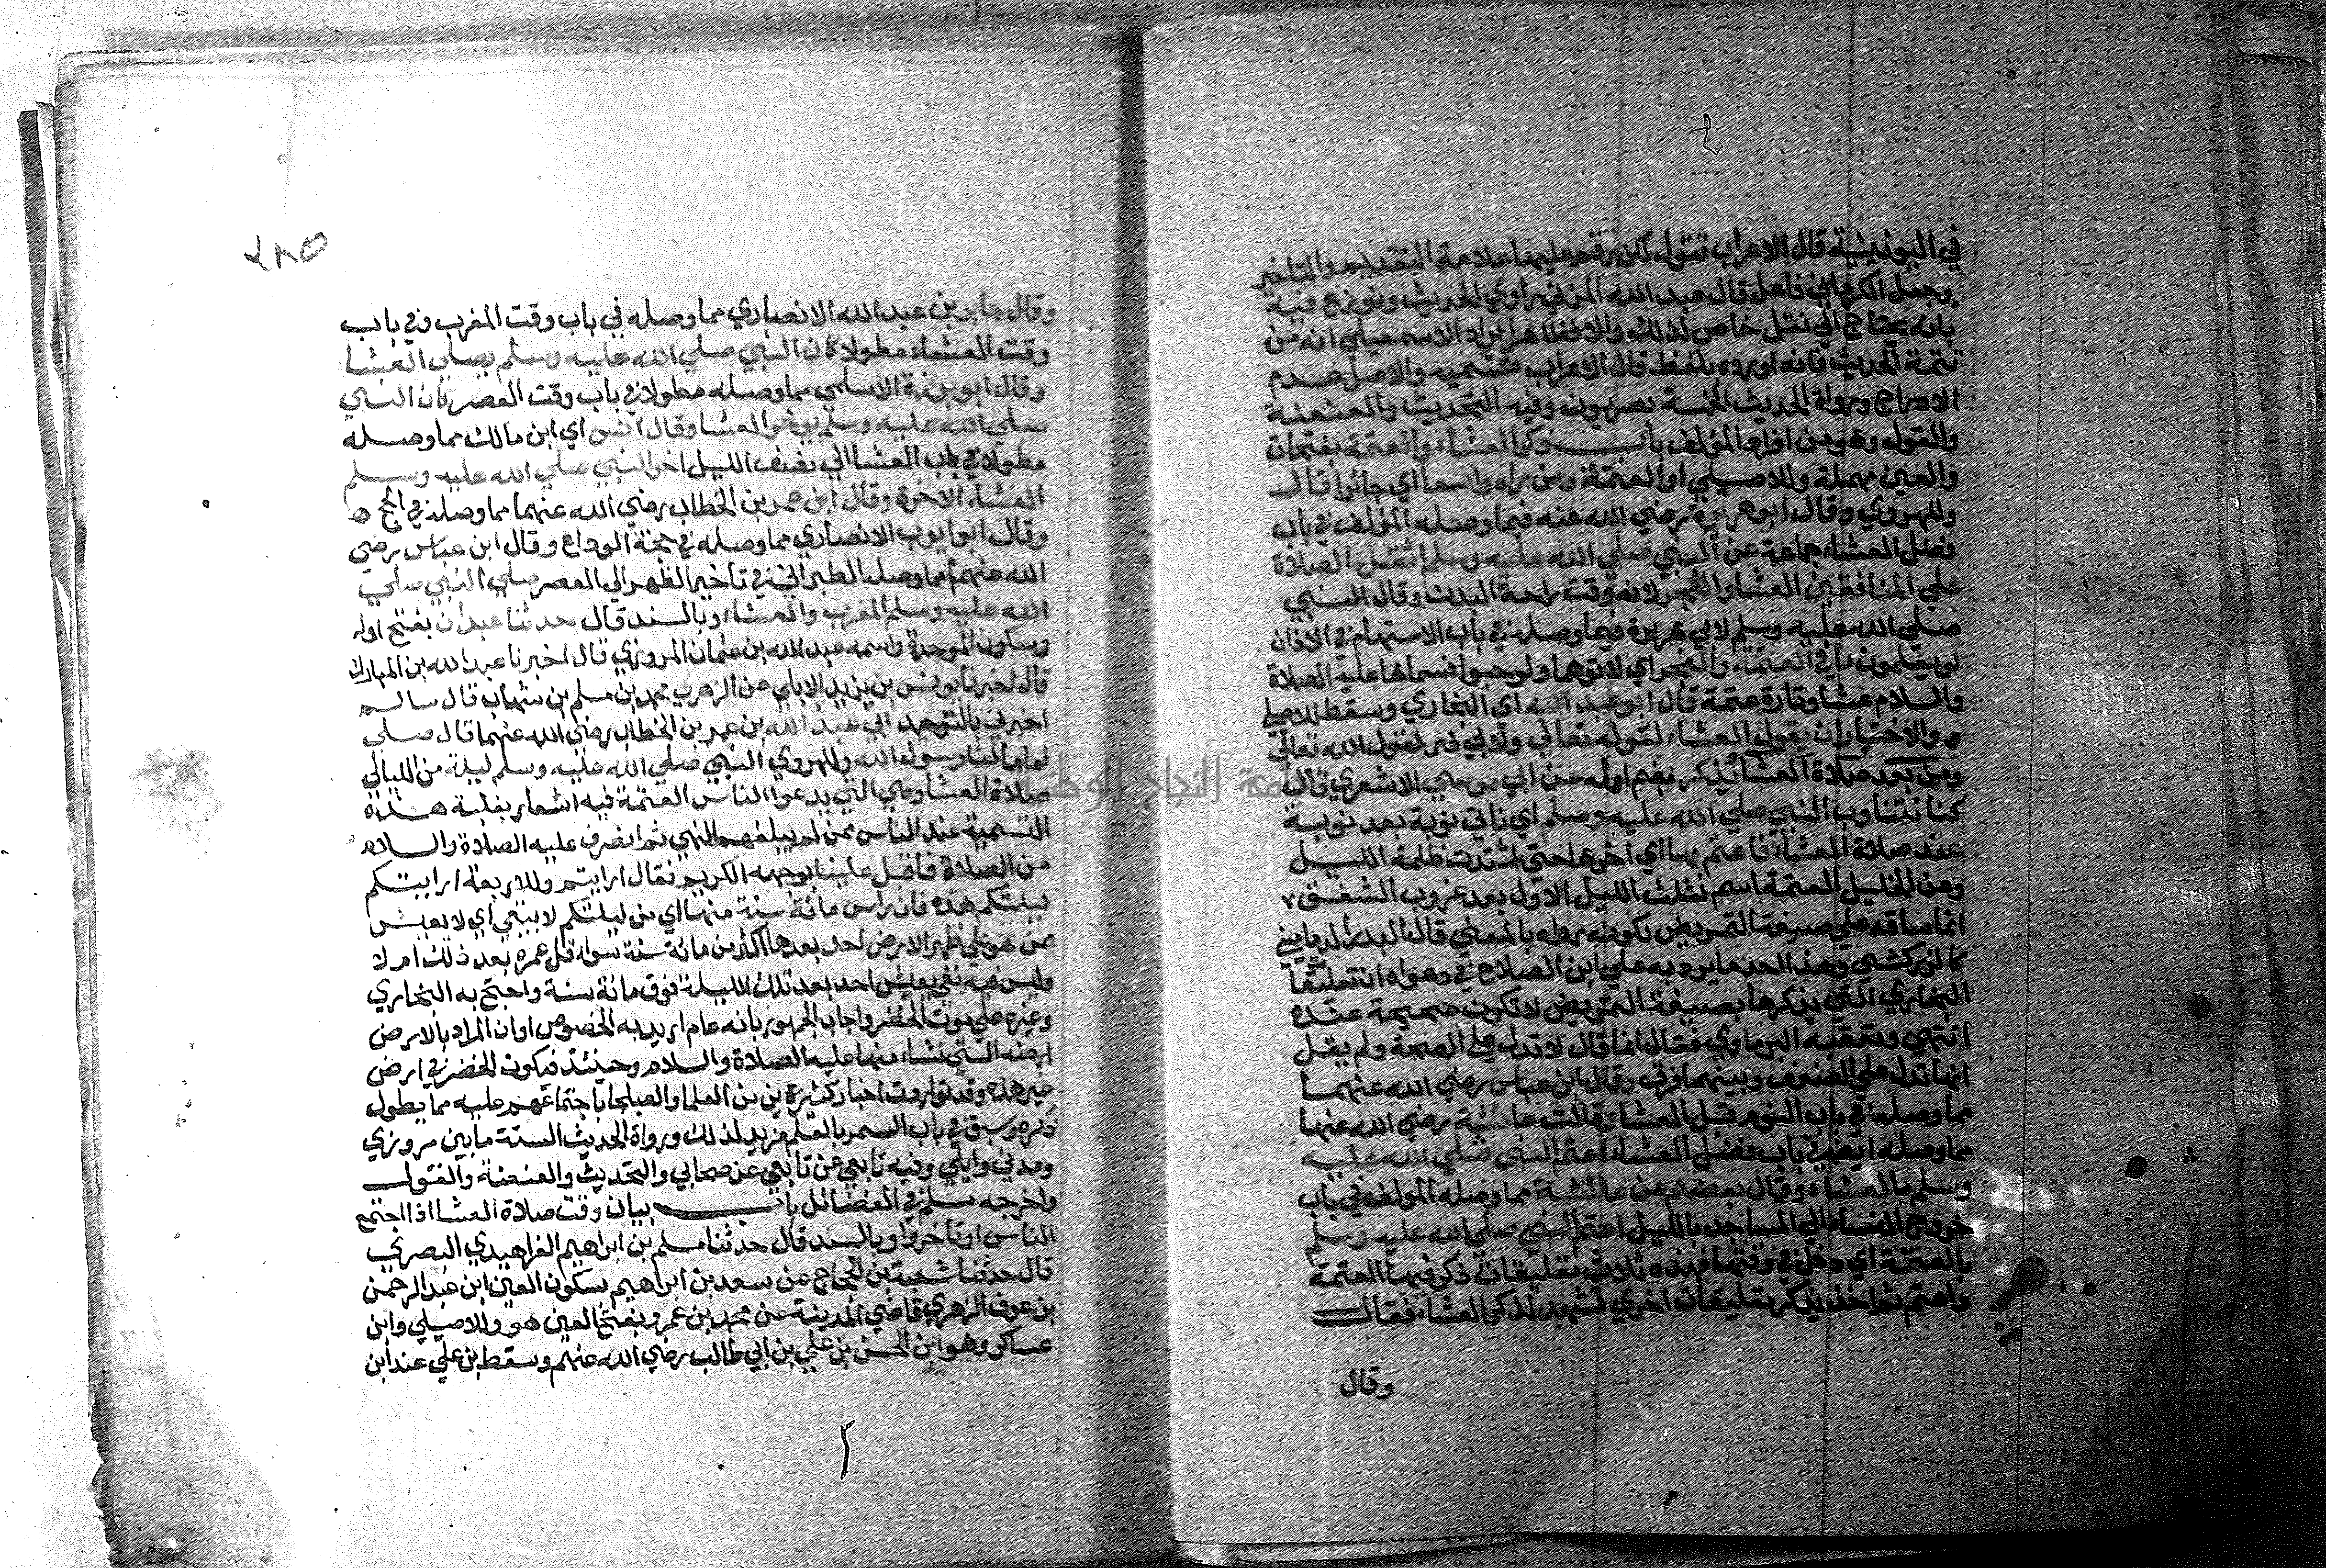 في اليونينية قال الاعراب تقول لكن رقم عليها علامة التقديم والتاخير
وجعل الكرماني فاعل قال عبد الله المزني راوي الحديث ونوزع فيه
بانه يحتاج الي نقل خاص لذلك والا فظاهر ايراد الاسمعيلي انه من
تتمة الحديث فانه اورده بلفظ فان الاعراب تسميه والاصل عدم
الادراج ورواة الحديث الخمسة بصريون وفيه التحديث والعنعنة
والقول وهو من افراد المؤلف باب ذكر العشاء والعتمة بفتحات
والعين مهملة وللاصيلي او العتمة ومن راه واسعا اي جائزا قال
وللهروي وقال ابو هريرة رضي الله عنه فيما وصله المؤلف في باب
فضل العشاء جماعة عن النبي صلي الله عليه وسلم اثقل الصلاة
علي المنافقين العشا والفجر لانه وقت راحة البدن وقال النبي
صلي الله عليه وسلم لابي هريرة فيما وصله في باب الاستهام في الاذان
لو يعلمون ما في العتمة والفجر اي لاتوهما ولو حبوا فسماها عليه الصلاة
والسلام عشا وتارة عتمة قال ابو عبد الله اي البخاري وسقط للاصيلي
والاختيار ان يقول العشاء لقوله تعالي ولابي ذر لقول الله تعالي
ومن بعد صلاة العشا يذكر بضم اوله عن ابي موسي الاشعري قال
كنا نتناوب النبي صلي الله عليه وسلم اي ناتي نوبة بعد نوبة
عند صلاة العشاء فاعتم بها اي اخرها حتي اشتدت ظلمة الليل
وعن الخليل العتمة اسم لثلث الليل الاول بعد غروب الشفق
انما ساقه علي صيغة التمريض لكونه رواه بالمعني قال البدر الدماميني
كالزركشي وهذا احد ما يرد به علي ابن الصلاح في دعواه ان تعليقات
البخاري التي يذكرها بصيغة التمريض لا تكون صحيحة عنده
انتهي وتعقبه البرماوي فقال انما قال لا تدل علي الصحة ولم يقل
انها تدل علي الضعف وبينهما فرق وقال ابن عباس رضي الله عنهما
مما وصله في باب النوم قبل العشا وقالت عائشة رضي الله عنها
مما وصله ايضا في باب فضل العشاء اعتم النبي صلي الله عليه
وسلم بالعشاء وقال بعضهم عن عائشة مما وصله المولف في باب
خروج النساء الي المساجد بالليل اعتم النبي صلي الله عليه وسلم
بالعتمة اي دخل في وقتها فهذه ثلاث تعليقات ذكر فيها العتمة
واعتم ثم اخذ يذكر تعليقات اخري تشهد لذكر العشاء فقال
وقال
٢٨٥
وقال جابر بن عبد الله الانصاري مما وصله في باب وقت المغرب وفي باب
وقت العشاء مطولا كان النبي صلي الله عليه وسلم يصلي العشا
وقال ابو برزة الاسلمي مما وصله مطولا في باب وقت العصر كان النبي
صلي الله عليه وسلم يوخر العشا وقال انس اي ابن مالك مما وصله
مطولا في باب العشا الي نصف الليل اخر النبي صلي الله عليه وسلم
العشاء الاخرة وقال ابن عمر بن الخطاب رضي الله عنهما مما وصله في الحج
وقال ابو ايوب الانصاري مما وصله في حجة الوداع وقال ابن عباس رضي
الله عنهم مما وصله الطبراني في تاخير الظهر الي العصر صلي النبي صلي
الله عليه وسلم المغرب والعشاء وبالسند قال حدثنا عبدان بفتح اوله
وسكون الموحدة واسمه عبد الله بن عثمان المروزي قال اخبرنا عبد الله بن المبارك
قال اخبرنا يونس بن يزيد الايلي عن الزهري محمد بن مسلم بن شهاب قال سالم
اخبرني بالتوحيد ابي عبد الله بن عمر بن الخطاب رضي الله عنهما قال صلي
اماما لنا رسول الله وللهروي النبي صلي الله عليه وسلم ليلة من الليالي
صلاة العشا وهي التي يدعوا الناس العتمة فيه اشعار بغلبة هذه
التسمية عند الناس ممن لم يبلغهم النهي ثم انصرف عليه الصلاة والسلام
من الصلاة فاقبل علينا بوجهه الكريم فقال ارايتم وللاربعة ارايتكم
ليلتكم هذه فان راس مائة سنة منها اي من ليلتكم لا يبقي اي لا يعيش
ممن هو علي ظهر الارض احد بعدها اكثر من مائة سنة سواء قل عمره بعد ذلك ام لا
وليس فيه نفي عيش احد بعد تلك الليلة فوق مائة سنة واحتج به البخاري
وغيره علي موت الخضر واجاب الجمهور بانه عام اريد به الخصوص او ان المراد بالارض
ارضه التي نشاء منها عليه الصلاة والسلام وحينئذ فيكون الخضر في ارض
غير هذه وقد تواردت اخبار كثيرة من العلما والصلحا باجتماعهم عليه مما يطول
ذكره وسبق في باب السمر بالعلم مزيد لذلك ورواة الحديث الستة ما بين مروزي
ومدني وايلي وفيه تابعي عن تابعي عن صحابي والتحديث والعنعنة والقول
واخرجه مسلم في الفضائل باب بيان وقت صلاة العشا اذا اجتمع
الناس او تاخروا وبالسند قال حدثنا مسلم بن ابراهيم الفراهيدي البصري
قال حدثنا شعبة بن الحجاج عن سعد بن ابراهيم بسكون العين ابن عبد الرحمن
بن عوف الزهري قاضي المدينة عن محمد بن عمرو بفتح العين هو وللاصيلي وابن
عساكر وهو ابن الحسن بن علي بن ابي طالب رضي الله عنهم وسقط بن علي عند ابن